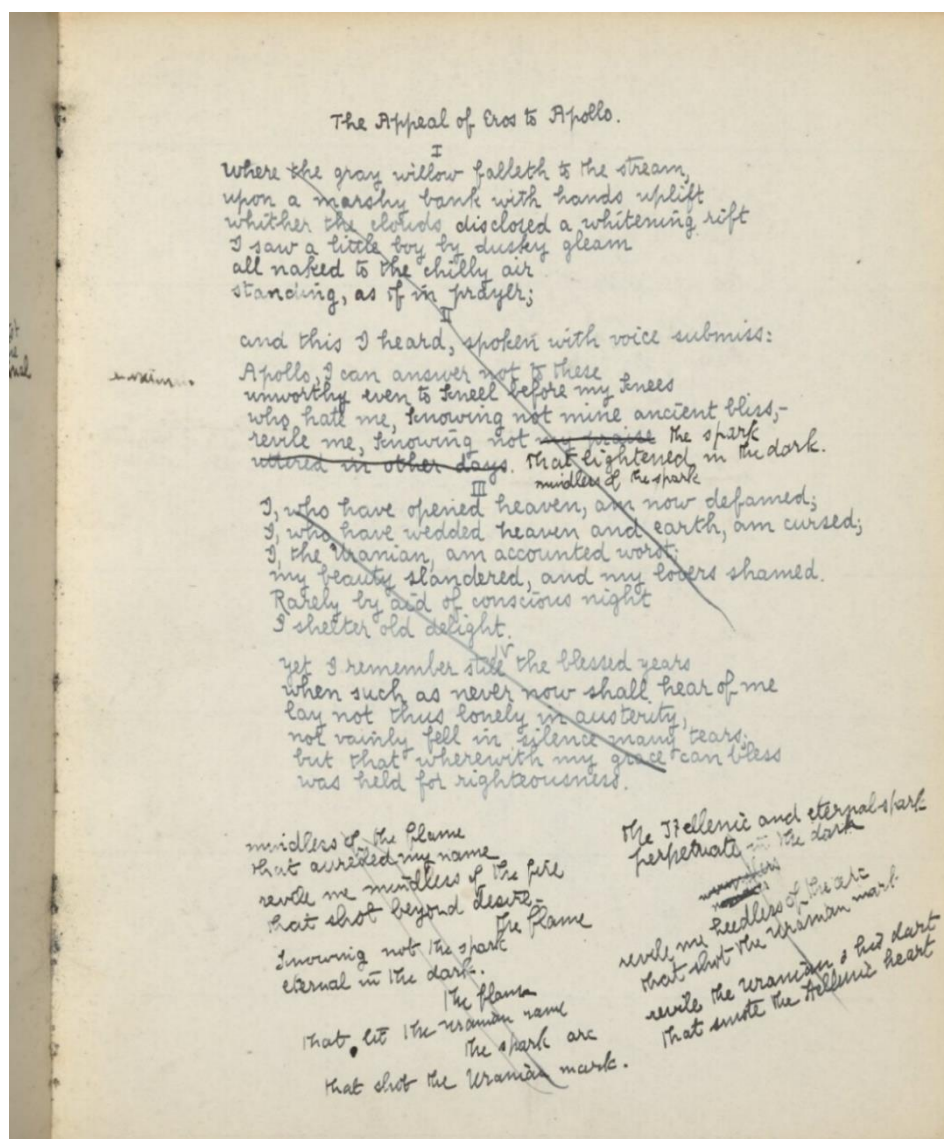 The Appeal of Eros to Apollo.
I
Where the gray willow falleth to the stream,
upon a marshy bank with hands uplift
whither the clouds disclosed a whitening rift
I saw a little boy by dusky gleam
all naked to the chilly air
standing, as if in prayer;
II
and this I heard, spoken with voice submiss:
Apollo, I can answer not to these
unworthy even to kneel before my knees
who hate me, knowing not mine ancient bliss,-
revile me, knowing not my praise the spark
uttered in other days. that lightened in the dark.
mindless of the spark
III
I, who have opened heaven, am now defamed;
I, who have wedded heaven and earth, am cursed;
I, the Uranian, am accounted worst;
my beauty slandered, and my lovers shamed.
Rarely by aid of conscious night
I shelter old delight.
IV
yet I remember still the blessed years
when such as never now shall hear of me
lay not thus lonely in austerity,
not vainly fell in silence many tears;
but that wherewith my grace can bless
was held for righteousness.
mindless of the flame
that aureoled my name
revile me mindless of the fire
that shot beyond desire-
the flame
knowing not the spark
eternal in the dark.
the flame
that lit the Uranian name
the spark arc
that shot the Uranian mark.
the Hellenic and eternal spark
perpetuate in the dark
revile me heedless of the arc
that shot the Uranian mark
revile the Uranian & his dart
that smote the Hellenic heart